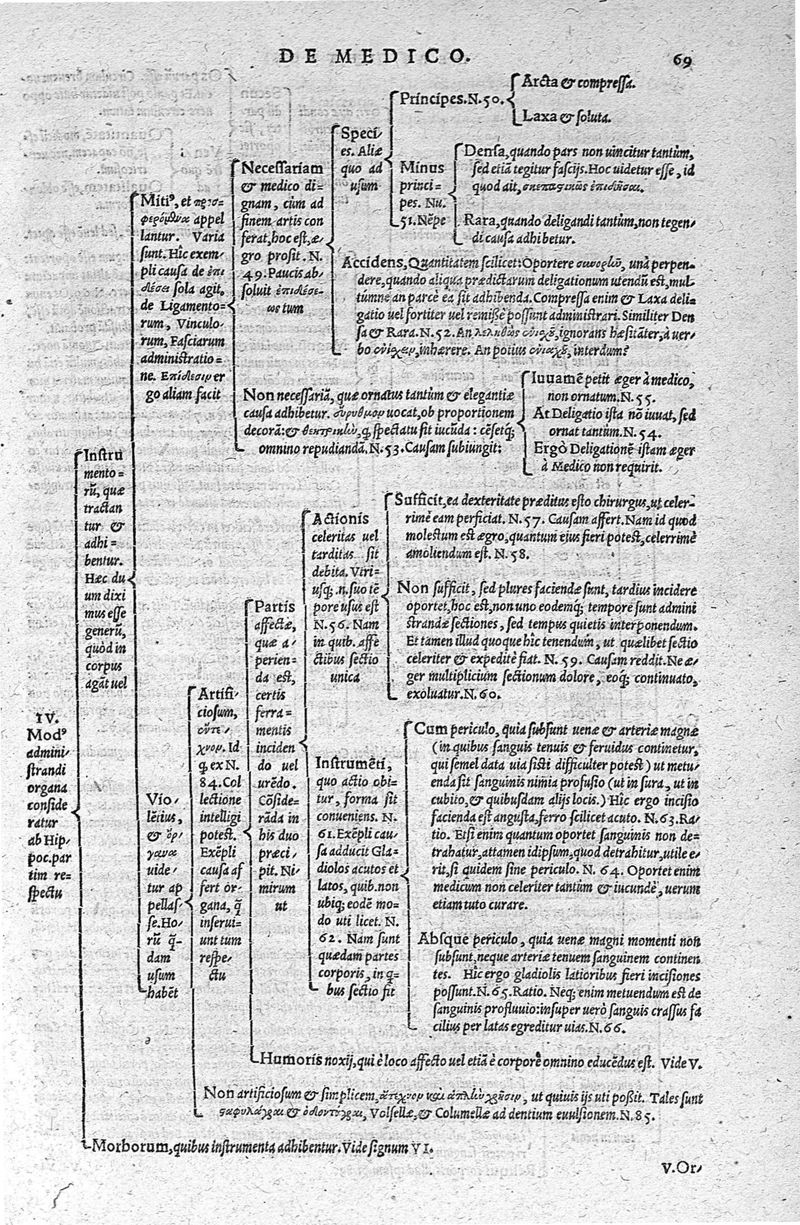 DE MEDICO.
69
IV.
Modꝰ
admini⸗
strandi
organa
conside
ratur
ab Hip⸗
poc. par
tim re⸗
spectu
Instru
mento⸗
rũ, quæ
tractan
tur &
adhi⸗
bentur.
Hæc du
um dixi
mus esse
generũ,
quòd in
corpus
agãt uel
Mitiꝰ, et
appel
lantur. Varia
sunt. Hic exem⸗
pli causa de ἐπι
δέσει sola agit,
de Ligamento⸗
rum, Vinculo⸗
rum, Fasciarum
administratio⸗
ne. Ἐπίδεσιν er
go aliam facit
Necessariam
& medico di⸗
gnam, cùm ad
finem artis con
ferat, hoc est, æ⸗
gro prosit. N.
49. Paucis ab⸗
soluit ἐπιδέσε⸗
ως tum
Speci⸗
es. Aliæ
quo ad
usum
Principes. N. 50.
Arcta & compressa.
Laxa & soluta.
Minus
princi⸗
pes. Nu.
51. Nẽpe
Densa, quando pars non uincitur tantùm,
sed etiã tegitur fascijs. Hoc uidetur esse, id
quod ait,
Rara, quando deligandi tantùm, non tegen⸗
di causa adhibetur.
Accidens, Quantitatem scilicet: Oportere unà perpen⸗
dere, quando aliqua prædictarum deligationum utendũ est, mul⸗
tumne an parcè ea sit adhibenda. Compressa enim & Laxa deli⸗
gatio uel fortiter uel remissè possunt administrari. Similiter Den
sa & Rara. N. 52. An ignorans hæsitãter, à uer⸗
bo inhærere. An potius interdum?
Non necessariã, quæ ornatus tantùm & elegantiæ
causa adhibetur. uocat, ob proportionem
decorã: & q̃ spectatu sit iucũda: cẽsetq́;
omnino repudiandã. N. 53. Causam subiungit:
Iuuamẽ petit æger à medico,
non ornatum. N. 55.
At Deligatio ista nõ iuuat, sed
ornat tantùm. N. 54.
Ergò Deligationẽ istam æger
à Medico non requirit.
Vio⸗
lẽtius,
& ὄρ⸗
γανα
uide⸗
tur ap
pellas⸗
se. Ho⸗
rũ q̃⸗
dam
usum
habẽt
Artifi⸗
ciosum,
ἔντε⸗
χνον. Id
q̃ ex N.
84. Col
lectione
intelligi
potest.
Exẽpli
causa af
fert or⸗
gana, q̃
inserui⸗
unt tum
respe⸗
ctu
Partis
affectæ,
quæ a⸗
perien⸗
da est,
certis
ferra⸗
mentis
inciden
do uel
urẽdo.
Cõside⸗
rãda in
his duo
præci⸗
pit. Ni⸗
mirum
ut
Actionis
celeritas uel
tarditas sit
debita. Vtri⸗
usq́; .n. suo tẽ
pore usus est
N. 56. Nam
in quib. affe
ctibus sectio
unica
Sufficit, ea dexteritate præditus esto chirurgus, ut celer⸗
rimè eam perficiat. N. 57. Causam affert. Nam id quod
molestum est ægro, quantum ejus fieri potest, celerrimè
amoliendum est. N. 58.
Non sufficit, sed plures faciendæ sunt, tardius incidere
oportet, hoc est, non uno eodemq́; tempore sunt admini
strandæ sectiones, sed tempus quietis interponendum.
Et tamen illud quoque hic tenendum, ut quælibet sectio
celeriter & expeditè fiat. N. 59. Causam reddit. Ne æ⸗
ger multiplicium sectionum dolore, eoq́; continuato,
exoluatur. N. 60.
Instrumẽti,
quo actio obi⸗
tur, forma sit
conueniens. N.
61. Exẽpli cau⸗
sa adducit Gla⸗
diolos acutos et
latos, quib. non
ubiq́; eodẽ mo⸗
do uti licet. N.
62. Nam sunt
quædam partes
corporis, in q̃⸗
bus sectio fit
Cum periculo, quia subsunt uenæ & arteriæ magnæ
(in quibus sanguis tenuis & feruidus continetur,
qui semel data uia sisti difficulter potest) ut metu⸗
enda sit sanguinis nimia profusio (ut in sura, ut in
cubito, & quibusdam alijs locis.) Hic ergo incisio
facienda est angusta, ferro scilicet acuto. N. 63. Ra⸗
tio. Etsi enim quantum oportet sanguinis non de⸗
trahatur, attamen idipsum, quod detrahitur, utile e⸗
rit, si quidem sine periculo. N. 64. Oportet enim
medicum non celeriter tantùm & iucundè, uerum
etiam tuto curare.
Absque periculo, quia uenæ magni momenti non
subsunt, neque arteriæ tenuem sanguinem continen
tes. Hic ergo gladiolis latioribus fieri incisiones
possunt. N. 65. Ratio. Neq́; enim metuendum est de
sanguinis profluuio: insuper uerò sanguis crassus fa
cilius per latas egreditur uias. N. 66.
Humoris noxij, qui è loco affecto uel etiã è corpore omnino educẽdus est. Vide V.
Non artificiosum & simplicem, ut quiuis ijs uti possit. Tales sunt
& Volsellæ, & Columellæ ad dentium euulsionem. N. 85.
Morborum, quibus instrumenta adhibentur. Vide signum VI.
V. Or⸗